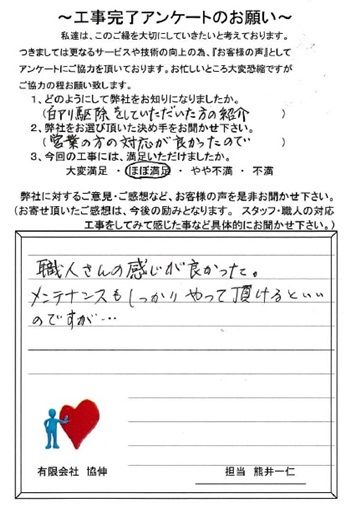 ～工事完了アンケートのお願い～
私達は、このご縁を大切にしていきたいと考えております。
つきましては更なるサービスや技術の向上の為、『お客様の声』として
アンケートにご協力を頂いております。お忙しいところ大変恐縮ですが
ご協力の程お願い致します。
1、どのようにして弊社をお知りになりましたか。
(白アリ駆除をしていただいた方の紹介)
2、弊社をお選び頂いた決め手をお聞かせ下さい。
(営業の方の対応が良かったので)
3、今回の工事には、満足いただけましたか。
大変満足 ・ ほぼ満足 ・ やや不満 ・ 不満
弊社に対するご意見・ご感想など、お客様の声を是非お聞かせ下さい。
(お寄せ頂いたご感想は、今後の励みとなります。 スタッフ・職人の対応
工事をしてみて感じた事など具体的にお聞かせ下さい。)
職人さんの感じが良かった。
メンテナンスもしっかりやって頂けるといい
のですが…
有限会社 協伸
担当 熊井一仁